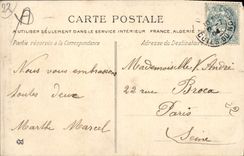 CARTE POSTALE
A UTILISER SEULEMENT DANS LE SERVICE INTÉRIEUR FRANCE, ALGÉRIE
Partie réservée à la Correspondance
Adresse du Destinataire
Mademoiselle André
Nous vous embrassons
toutes deux
22 rue Broca
Paris
Marthe Marcel
Seine